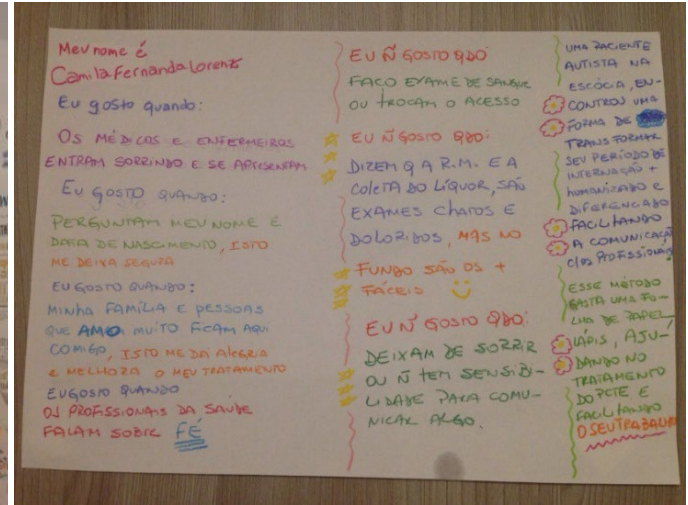 Meu nome é
Camila Fernanda Lorenz
Eu gosto quando:
OS MÉDICOS E ENFERMEIROS
ENTRAM SORRINDO E SE APRESENTAM
EU GOSTO QUANDO:
PERGUNTAM MEU NOME E
DATA DE NASCIMENTO, ISTO
ME DEIXA SEGURA
EU GOSTO QUANDO:
MINHA FAMÍLIA E PESSOAS
QUE AMO MUITO FICAM AQUI
COMIGO, ISTO ME DA ALEGRIA
E MELHORA O MEU TRATAMENTO
EU GOSTO QUANDO
OS PROFISSIONAIS DA SAÚDE
FALAM SOBRE FÉ
EU Ñ GOSTO QDO
FAÇO EXAME DE SANGUE
OU TROCAM O ACESSO
EU Ñ GOSTO QDO:
DIZEM Q A R.M. E A
COLETA DO LÍQUOR, SÃO
EXAMES CHATOS E
DOLORIDOS, MAS NO
FUNDO SÃO OS +
FÁCEIS
EU Ñ GOSTO QDO:
DEIXAM DE SORRIR
OU Ñ TEM SENSIBI-
LIDADE PARA COMU-
NICAR ALGO.
UMA PACIENTE
AUTISTA NA
ESCÓCIA, EN-
CONTROU UMA
FORMA DE
TRANSFORMAR
SEU PERÍODO DE
INTERNAÇÃO +
HUMANIZADO E
DIFERENCIADO
FACILITANDO
A COMUNICAÇÃO
dos PROFISSIONAIS
ESSE MÉTODO
GASTA UMA FO-
LHA DE PAPEL
LÁPIS, AJU-
DANDO NO
TRATAMENTO
DO PCTE E
FACILITANDO
O SEU TRABALHO